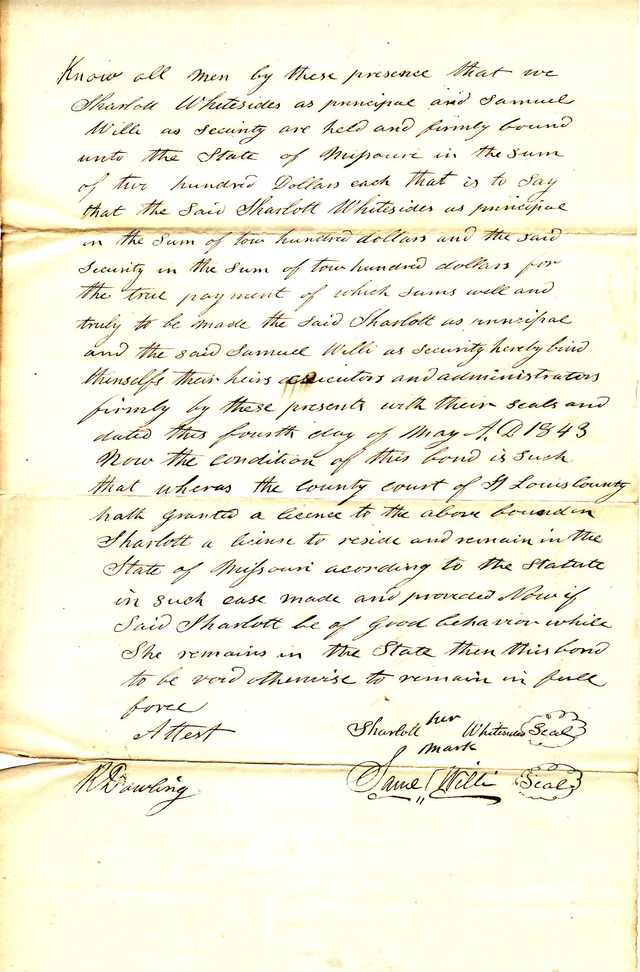 Know all men by these presence that we
Sharlott Whitesides as principal and Samuel
Willi as security are held and firmly bound
unto the State of Missouri in the sum
of two hundred Dollars each that is to say
that the said Sharlott Whitesides as principal
in the sum of tow hundred dollars and the said
security in the sum of tow hundred dollars for
the true payment of which sums well and
truly to be made the said Sharlott as principal
and the said Samuel Willi as security hereby bind
thimselfs their heirs executors and administrators
firmly by these presents with their seals and
dated this fourth day of May A.D 1843
Now the condition of this bond is such
that wheras the county court of St Louis County
hath granted a licence to the above bounden
Sharlott a license to reside and remain in the
State of Missouri acording to the Statute
in such case made and provided Now if
Said Sharlott be of good behavior while
She remains in the State then this bond
to be void otherwise to remain in full
force
Attest Sharlott her Whitesides Seal
mark
R Dowling Saml Willi Seal